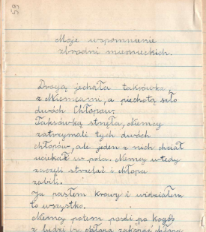 Moje wspomnienie
zbrodni niemieckich.
Drogą jechała taksówka
z Niemcami, a piechotą szło
dwóch chłopów.
Taksówka stanęła, Niemcy
zatrzymali tych dwóch
chłopów, ale jeden z nich chciał
uciekać w pole. Niemcy wtedy
zaczęli strzelać i chłopa
zabili.
Ja pasłam krowy i widziałam
to wszystko.
Niemcy potem